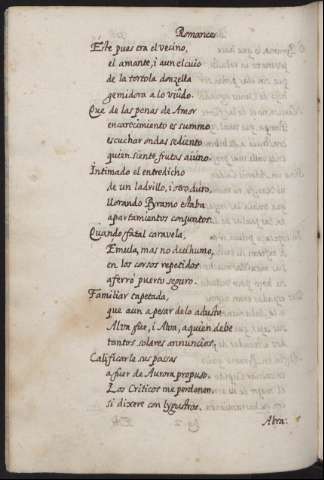 Romances
Éste pues era el vecino,
el amante, i aun el cuio
de la tortola donzella
gemidora a lo viùdo.
Que de las penas de Amor
encarecimiento es summo
escuchar ondas sediento
quien siente frutas aiuno.
Intimado el entredicho
de un ladrillo, i otro duro,
llorando Pyramo estaba
apartamientos conjuntos.
Quando fatal caravela,
Emula, mas no del humo,
en los corsos repetidos
aferrò puerto seguro.
Familiar tapetada,
que aun a pesar de lo adusto
Alva fue, i Alva, a quien debe
tantos solares annuncios;
Calificarle sus passas
a fuer de Aurora propuso,
Los Criticos me perdonen
si dixere con lygustros.
Abra: